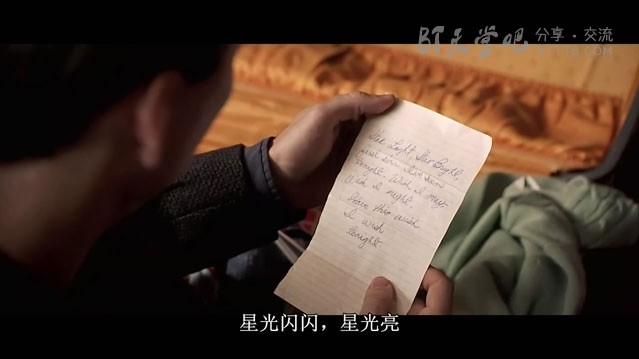 BT天堂吧 分享·交流
Star Light, Star Bright,
Tonight. Wish I May
Wish I Might
Have this wish
I wish
tonight
星光闪闪，星光亮